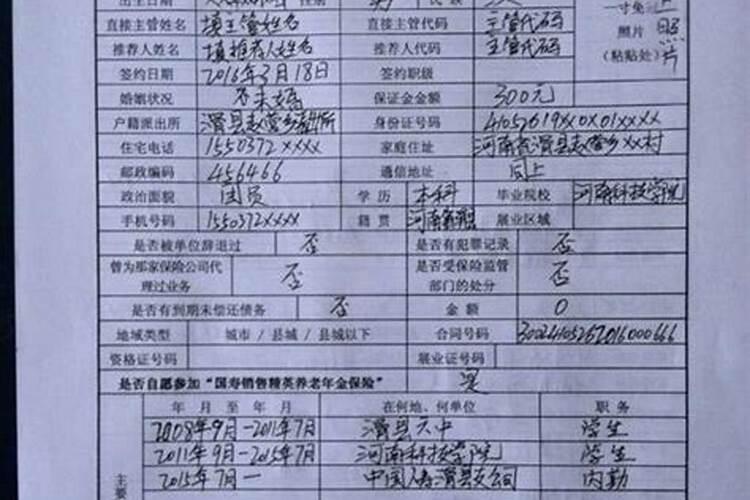 出生日期 性别 男 民族
一寸免冠
直接主管姓名 填主管姓名 直接主管代码 主管代码
照片 照
推荐人姓名 填推荐人姓名 推荐人代码 主管代码
(粘贴处) 片
签约日期 2016年3月18日 签约职级
婚姻状况 否未婚 保证金金额 300元
户籍派出所 滑县赵营乡派出所 身份证号码 41052619xx0x01xxxx
住宅电话 1550372xxxx 家庭住址 河南省滑县赵营乡xx村
邮政编码 456466 通信地址 同上
政治面貌 团员 学历 本科 毕业院校 河南科技学院
手机号码 1550372xxxx 籍贯 河南 展业区域
是否被单位辞退过 否 是否有犯罪记录 否
曾为那家保险公司代理过业务 否 是否受保险监管部门的处分 否
是否有到期未偿还债务 否 金额 0
地域类型 城市 / 县城 / 县城以下 合同号码
资格证号码 展业证号码
是否自愿参加“国寿销售精英养老年金保险” 是
年 月 至 年 月 在何地、何单位 职务
2008年9月-2011年7月 滑县六中 学生
2011年9月-2015年7月 河南科技学院 学生
主要
2015年7月一 中国人寿滑县支公司 内勤